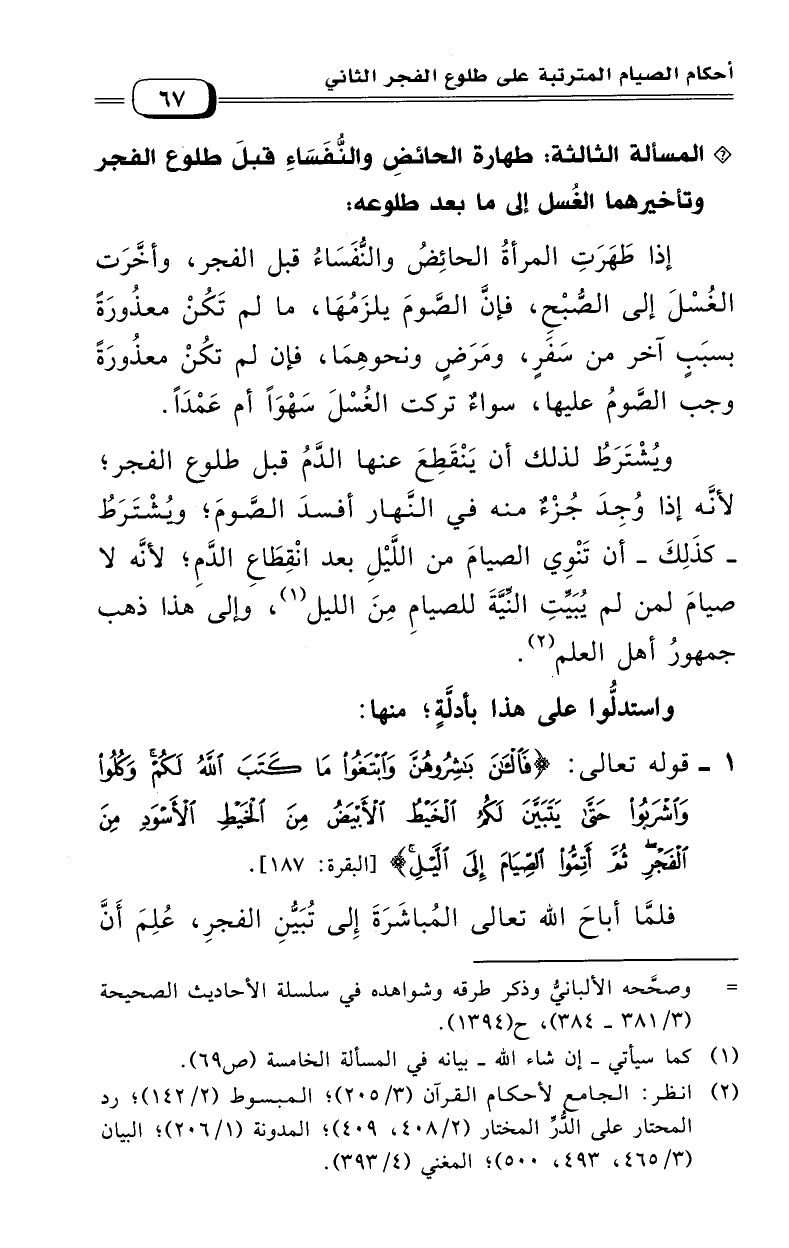 أحكام الصيام المترتبة على طلوع الفجر الثاني
٦٧
المسألة الثالثة: طهارة الحائضِ والنُّفَسَاءِ قبلَ طلوع الفجر
وتأخيرهما الغُسل إلى ما بعد طلوعه:
إذا طَهَرَتِ المرأةُ الحائِضُ والنُّفَسَاءُ قبل الفجر، وأخَّرَت
الغُسْلَ إلى الصُّبْحِ، فإنَّ الصَّومَ يلزمُهَا، ما لم تَكُنْ معذُورَةً
بسبَبٍ آخر من سَفَرٍ، ومَرَضٍ ونحوِهِمَا، فإن لم تكُنْ معذُورَةً
وجب الصَّومُ عليها، سواءٌ تركت الغُسْلَ سَهْوَاً أم عَمْدَاً.
ويُشْتَرَطُ لذلك أن يَنْقَطِعَ عنها الدَّمُ قبل طلوع الفجر؛
لأنَّه إذا وُجِدَ جُزْءٌ منه في النَّهار أفسدَ الصَّومَ؛ ويُشْتَرَطُ
ـ كذَلِكَ ـ أن تَنْوِي الصيامَ من اللَّيْلِ بعد انْقِطَاعِ الدَّمِ؛ لأنَّه لا
صيامَ لمن لم يُبَيِّتِ النِّيَّةَ للصيامِ مِنَ الليل(١)، وإلى هذا ذهب
جمهورُ أهل العلم(٢).
واستدلُّوا على هذا بأدلَّةٍ؛ منها:
١ ـ قوله تعالى: ﴿فَٱلْـَٰٔنَ بَٰشِرُوهُنَّ وَٱبْتَغُوا۟ مَا كَتَبَ ٱللَّهُ لَكُمْ ۚ وَكُلُوا۟
وَٱشْرَبُوا۟ حَتَّىٰ يَتَبَيَّنَ لَكُمُ ٱلْخَيْطُ ٱلْأَبْيَضُ مِنَ ٱلْخَيْطِ ٱلْأَسْوَدِ مِنَ
ٱلْفَجْرِ ۖ ثُمَّ أَتِمُّوا۟ ٱلصِّيَامَ إِلَى ٱلَّيْلِ ۚ﴾ [البقرة: ١٨٧].
فلمَّا أباحَ الله تعالى المُباشَرَةَ إلى تُبَيُّنِ الفجرِ، عُلِمَ أَنَّ
= وصحَّحه الألبانيُّ وذكر طرقه وشواهده في سلسلة الأحاديث الصحيحة
(٣/ ٣٨١ ـ ٣٨٤)، ح(١٣٩٤).
(١) كما سيأتي ـ إن شاء الله ـ بيانه في المسألة الخامسة (ص٦٩).
(٢) انظر: الجامع لأحكام القرآن (٣/ ٢٠٥)؛ المبسوط (٢/ ١٤٢)؛ رد
المحتار على الدُّرِّ المختار (٢/ ٤٠٨، ٤٠٩)؛ المدونة (١/ ٢٠٦)؛ البيان
(٣/ ٤٦٥، ٤٩٣، ٥٠٠)؛ المغني (٤/ ٣٩٣).